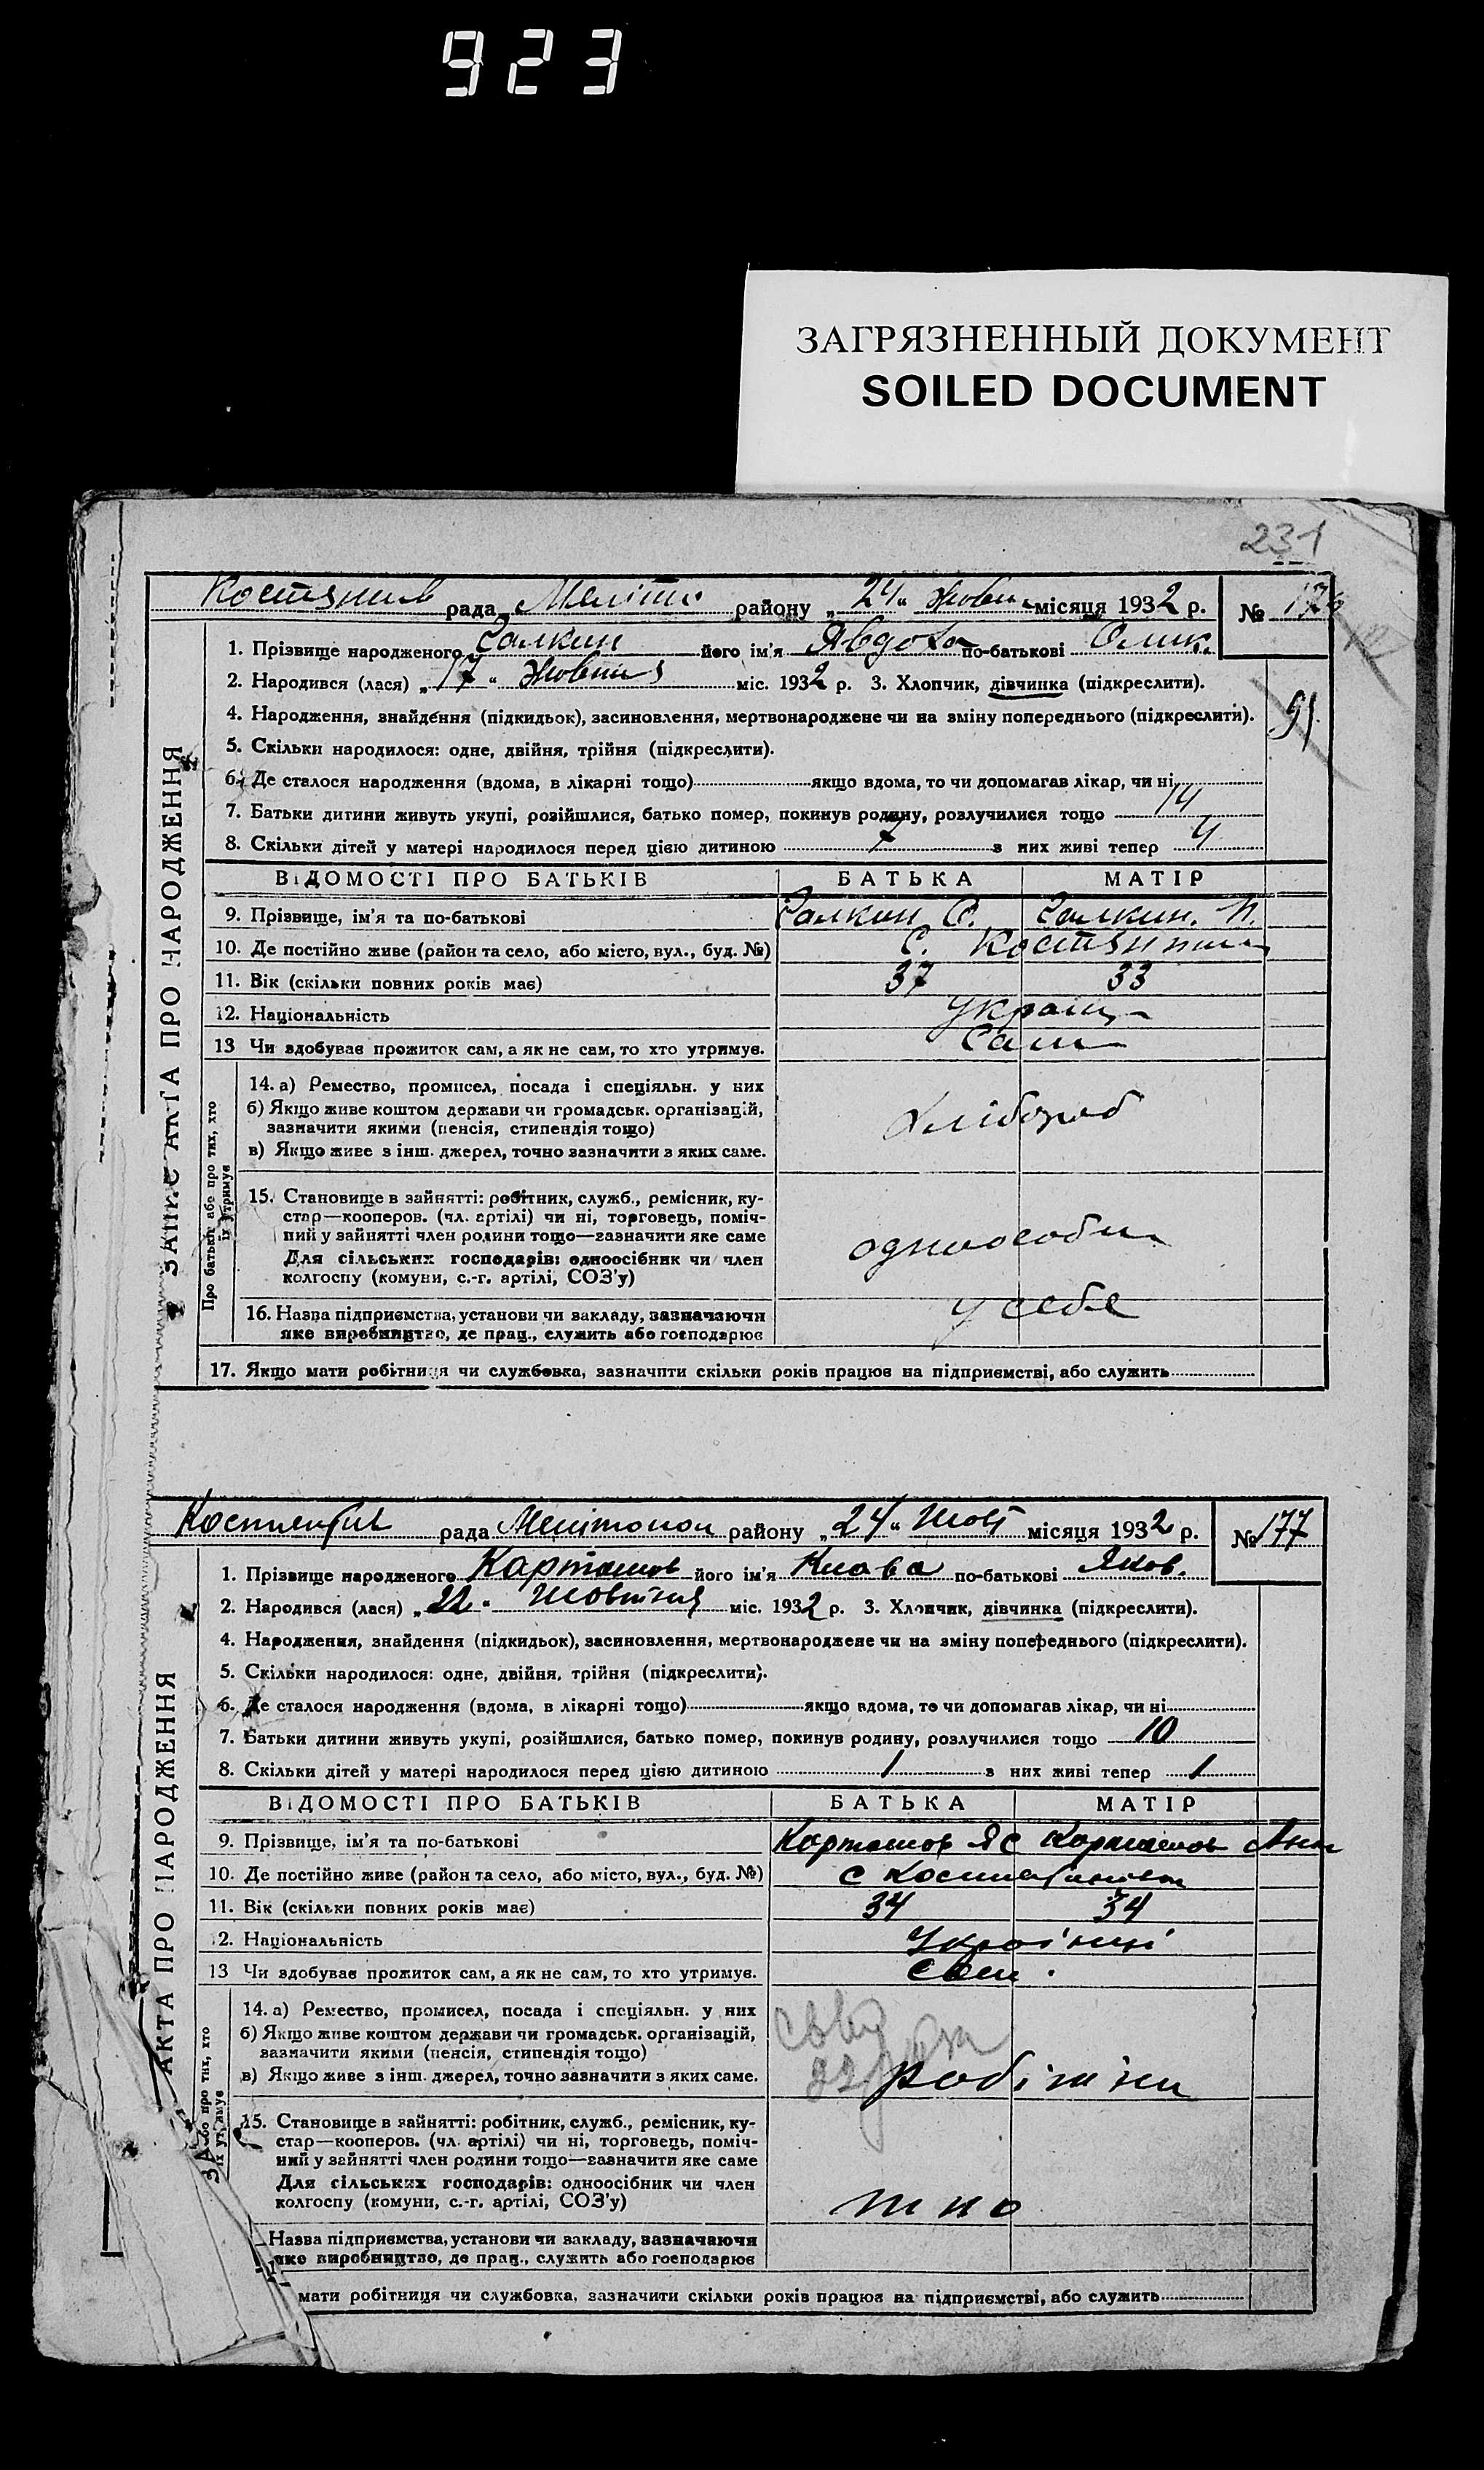 923
ЗАГРЯЗНЕННЫЙ ДОКУМЕНТ
SOILED DOCUMENT
231
рада Меліто району „24“ Жовтн місяця 1932 р. № 176
1. Прізвище народженого Галкин його ім'я Явдоха по-батькові Олик.
2. Народився (лася) „17“ Жовтня міс. 1932 р. 3. Хлопчик, дівчинка (підкреслити).
4. Народження, знайдення (підкидьок), засиновлення, мертвонароджене чи на зміну попереднього (підкреслити).
5. Скільки народилося: одне, двійня, трійня (підкреслити).
6. Де сталося народження (вдома, в лікарні тощо) якщо вдома, то чи допомагав лікар, чи ні
7. Батьки дитини живуть укупі, розійшлися, батько помер, покинув родину, розлучилися тощо 14
8. Скільки дітей у матері народилося перед цією дитиною 7 з них живі тепер 4
ВІДОМОСТІ ПРО БАТЬКІВ БАТЬКА МАТІР
9. Прізвище, ім'я та по-батькові Галкин О. Галкин. П.
10. Де постійно живе (район та село, або місто, вул., буд. №) С.
11. Вік (скільки повних років має) 37 33
12. Національність Україн
13 Чи здобуває прожиток сам, а як не сам, то хто утримує. Сам
14. а) Ремество, промисел, посада і спеціяльн. у них
б) Якщо живе коштом держави чи громадськ. організацій,
зазначити якими (пенсія, стипендія тощо) Хлібороб
в) Якщо живе з інш. джерел, точно зазначити з яких саме.
15. Становище в зайнятті: робітник, служб., ремісник, ку-
стар—кооперов. (чл. артілі) чи ні, торговець, поміч-
ний у зайнятті член родини тощо—зазначити яке саме
Для сільських господарів: одноосібник чи член одноособн
колгоспу (комуни, с.-г. артілі, СОЗ'у)
16. Назва підприємства, установи чи закладу, зазначаючи у себе
яке виробництво, де прац., служить або господарює
17. Якщо мати робітниця чи службовка, зазначити скільки років працює на підприємстві, або служить
ЗАПИС АКТА ПРО НАРОДЖЕННЯ
Про батьків або про тих, хто
їх утримує
рада Мелітопол району „24“ Жовт місяця 1932 р. № 177
1. Прізвище народженого Карташов його ім'я Клава по-батькові Яков.
2. Народився (лася) „22“ Жовтня міс. 1932 р. 3. Хлопчик, дівчинка (підкреслити).
4. Народження, знайдення (підкидьок), засиновлення, мертвонароджене чи на зміну попереднього (підкреслити).
5. Скільки народилося: одне, двійня, трійня (підкреслити).
6. Де сталося народження (вдома, в лікарні тощо) якщо вдома, то чи допомагав лікар, чи ні
7. Батьки дитини живуть укупі, розійшлися, батько помер, покинув родину, розлучилися тощо 10
8. Скільки дітей у матері народилося перед цією дитиною 1 з них живі тепер 1
ВІДОМОСТІ ПРО БАТЬКІВ БАТЬКА МАТІР
9. Прізвище, ім'я та по-батькові Карташов Я С Карташов Анн
10. Де постійно живе (район та село, або місто, вул., буд. №) с
11. Вік (скільки повних років має) 34 34
12. Національність Українці
13 Чи здобуває прожиток сам, а як не сам, то хто утримує. Сам.
14. а) Ремество, промисел, посада і спеціяльн. у них
б) Якщо живе коштом держави чи громадськ. організацій,
зазначити якими (пенсія, стипендія тощо)
в) Якщо живе з інш. джерел, точно зазначити з яких саме. робітни
15. Становище в зайнятті: робітник, служб., ремісник, ку-
стар—кооперов. (чл. артілі) чи ні, торговець, поміч-
ний у зайнятті член родини тощо—зазначити яке саме
Для сільських господарів: одноосібник чи член
колгоспу (комуни, с.-г. артілі, СОЗ'у)
Назва підприємства, установи чи закладу, зазначаючи
яке виробництво, де прац., служить або господарює
мати робітниця чи службовка, зазначити скільки років працює на підприємстві, або служить
АКТА ПРО НАРОДЖЕННЯ